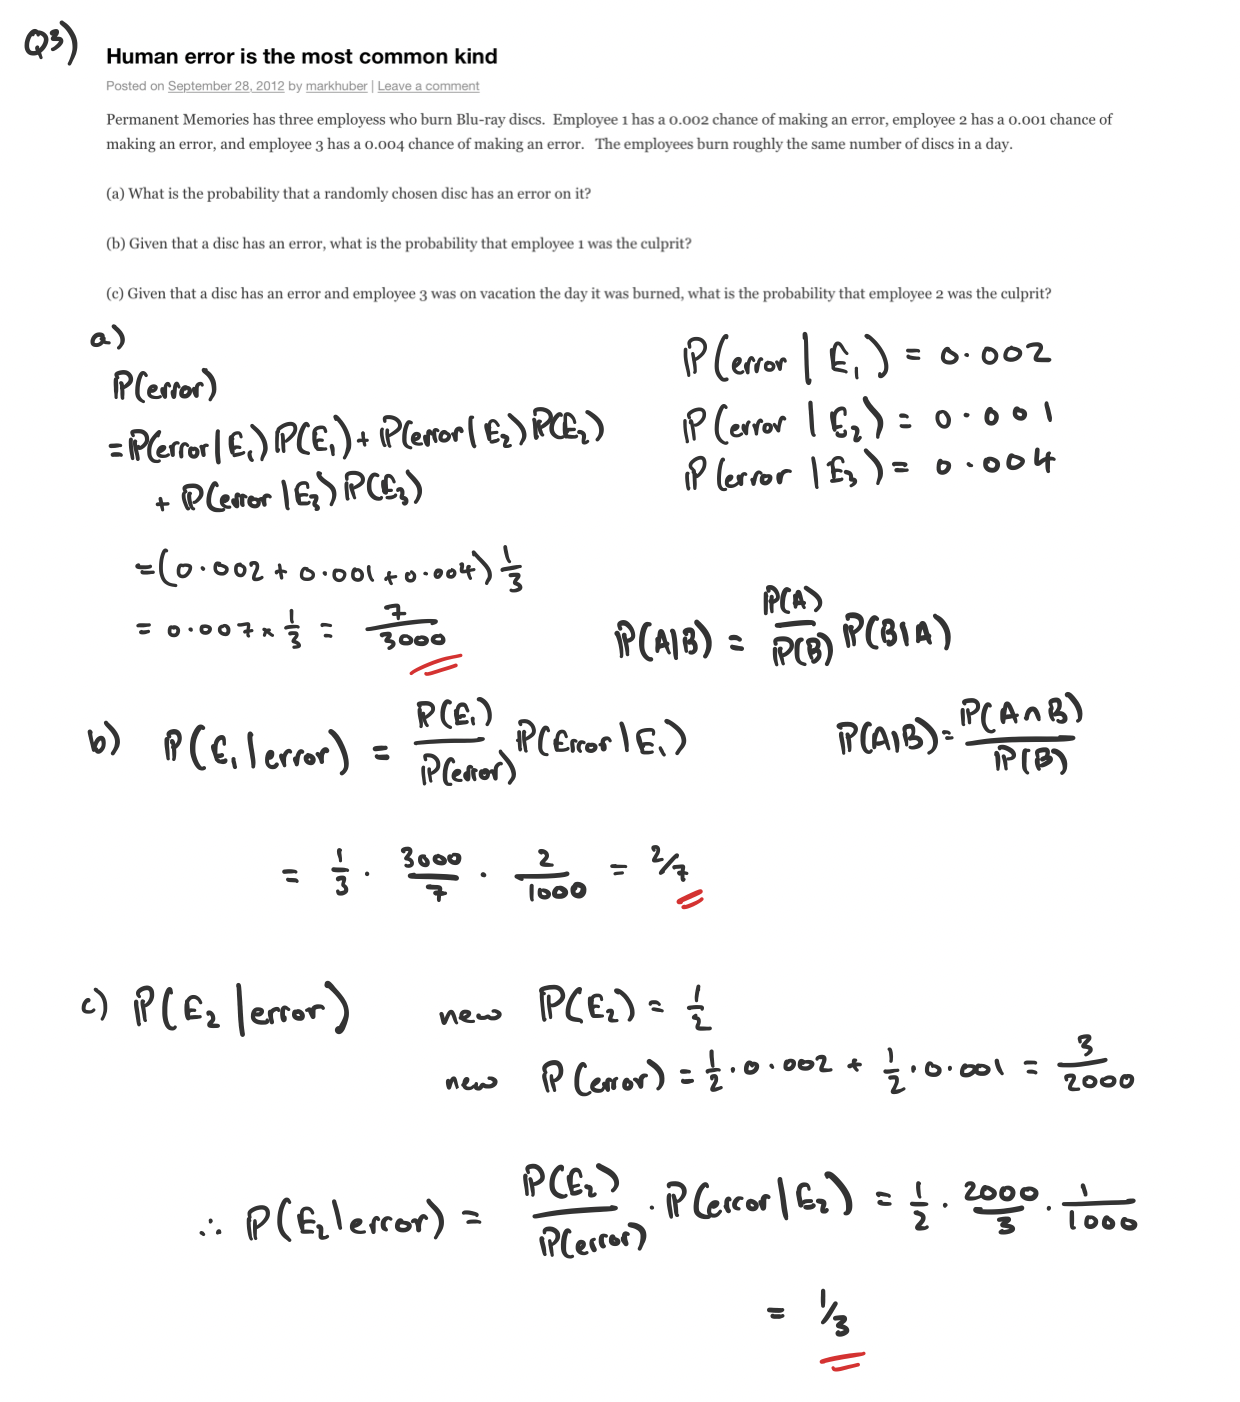 Q3)
Human error is the most common kind
Posted on September 28, 2012 by markhuber | Leave a comment
Permanent Memories has three employess who burn Blu-ray discs. Employee 1 has a 0.002 chance of making an error, employee 2 has a 0.001 chance of
making an error, and employee 3 has a 0.004 chance of making an error. The employees burn roughly the same number of discs in a day.
(a) What is the probability that a randomly chosen disc has an error on it?
(b) Given that a disc has an error, what is the probability that employee 1 was the culprit?
(c) Given that a disc has an error and employee 3 was on vacation the day it was burned, what is the probability that employee 2 was the culprit?
a)
ℙ(error)
= ℙ(error | E₁) ℙ(E₁) + ℙ(error | E₂) ℙ(E₂)
+ ℙ(error | E₃) ℙ(E₃)
= (0.002 + 0.001 + 0.004) 1/3
= 0.007 × 1/3 = 7/3000
ℙ(error | E₁) = 0.002
ℙ(error | E₂) = 0.001
ℙ(error | E₃) = 0.004
ℙ(A|B) = ℙ(A)/ℙ(B) ℙ(B|A)
b) ℙ(E₁ | error) = ℙ(E₁)/ℙ(error) ℙ(Error | E₁)
ℙ(A|B) = ℙ(A∩B)/ℙ(B)
= 1/3 · 3000/7 · 2/1000 = 2/7
c) ℙ(E₂ | error) new ℙ(E₂) = 1/2
new ℙ(error) = 1/2 · 0.002 + 1/2 · 0.001 = 3/2000
∴ ℙ(E₂ | error) = ℙ(E₂)/ℙ(error) · ℙ(error | E₂) = 1/2 · 2000/3 · 1/1000
= 1/3